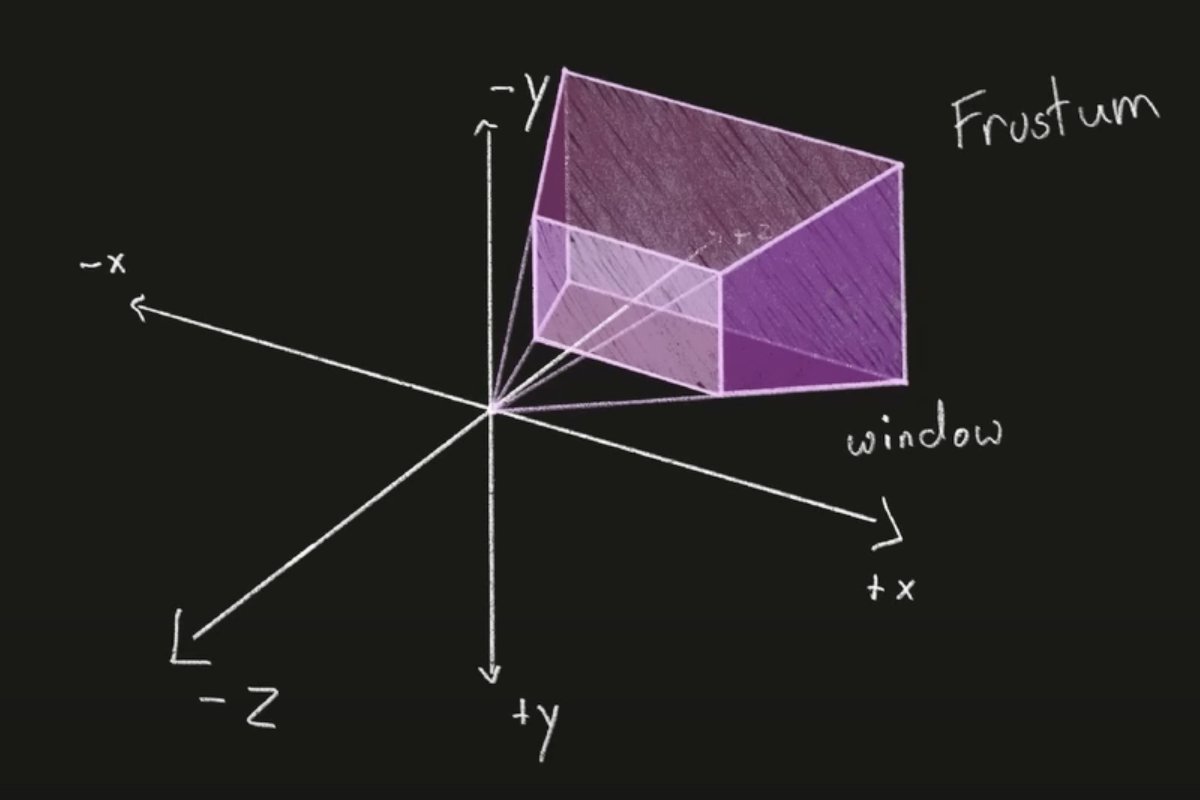 -y
Frustum
+z
-x
window
+x
-z
+y